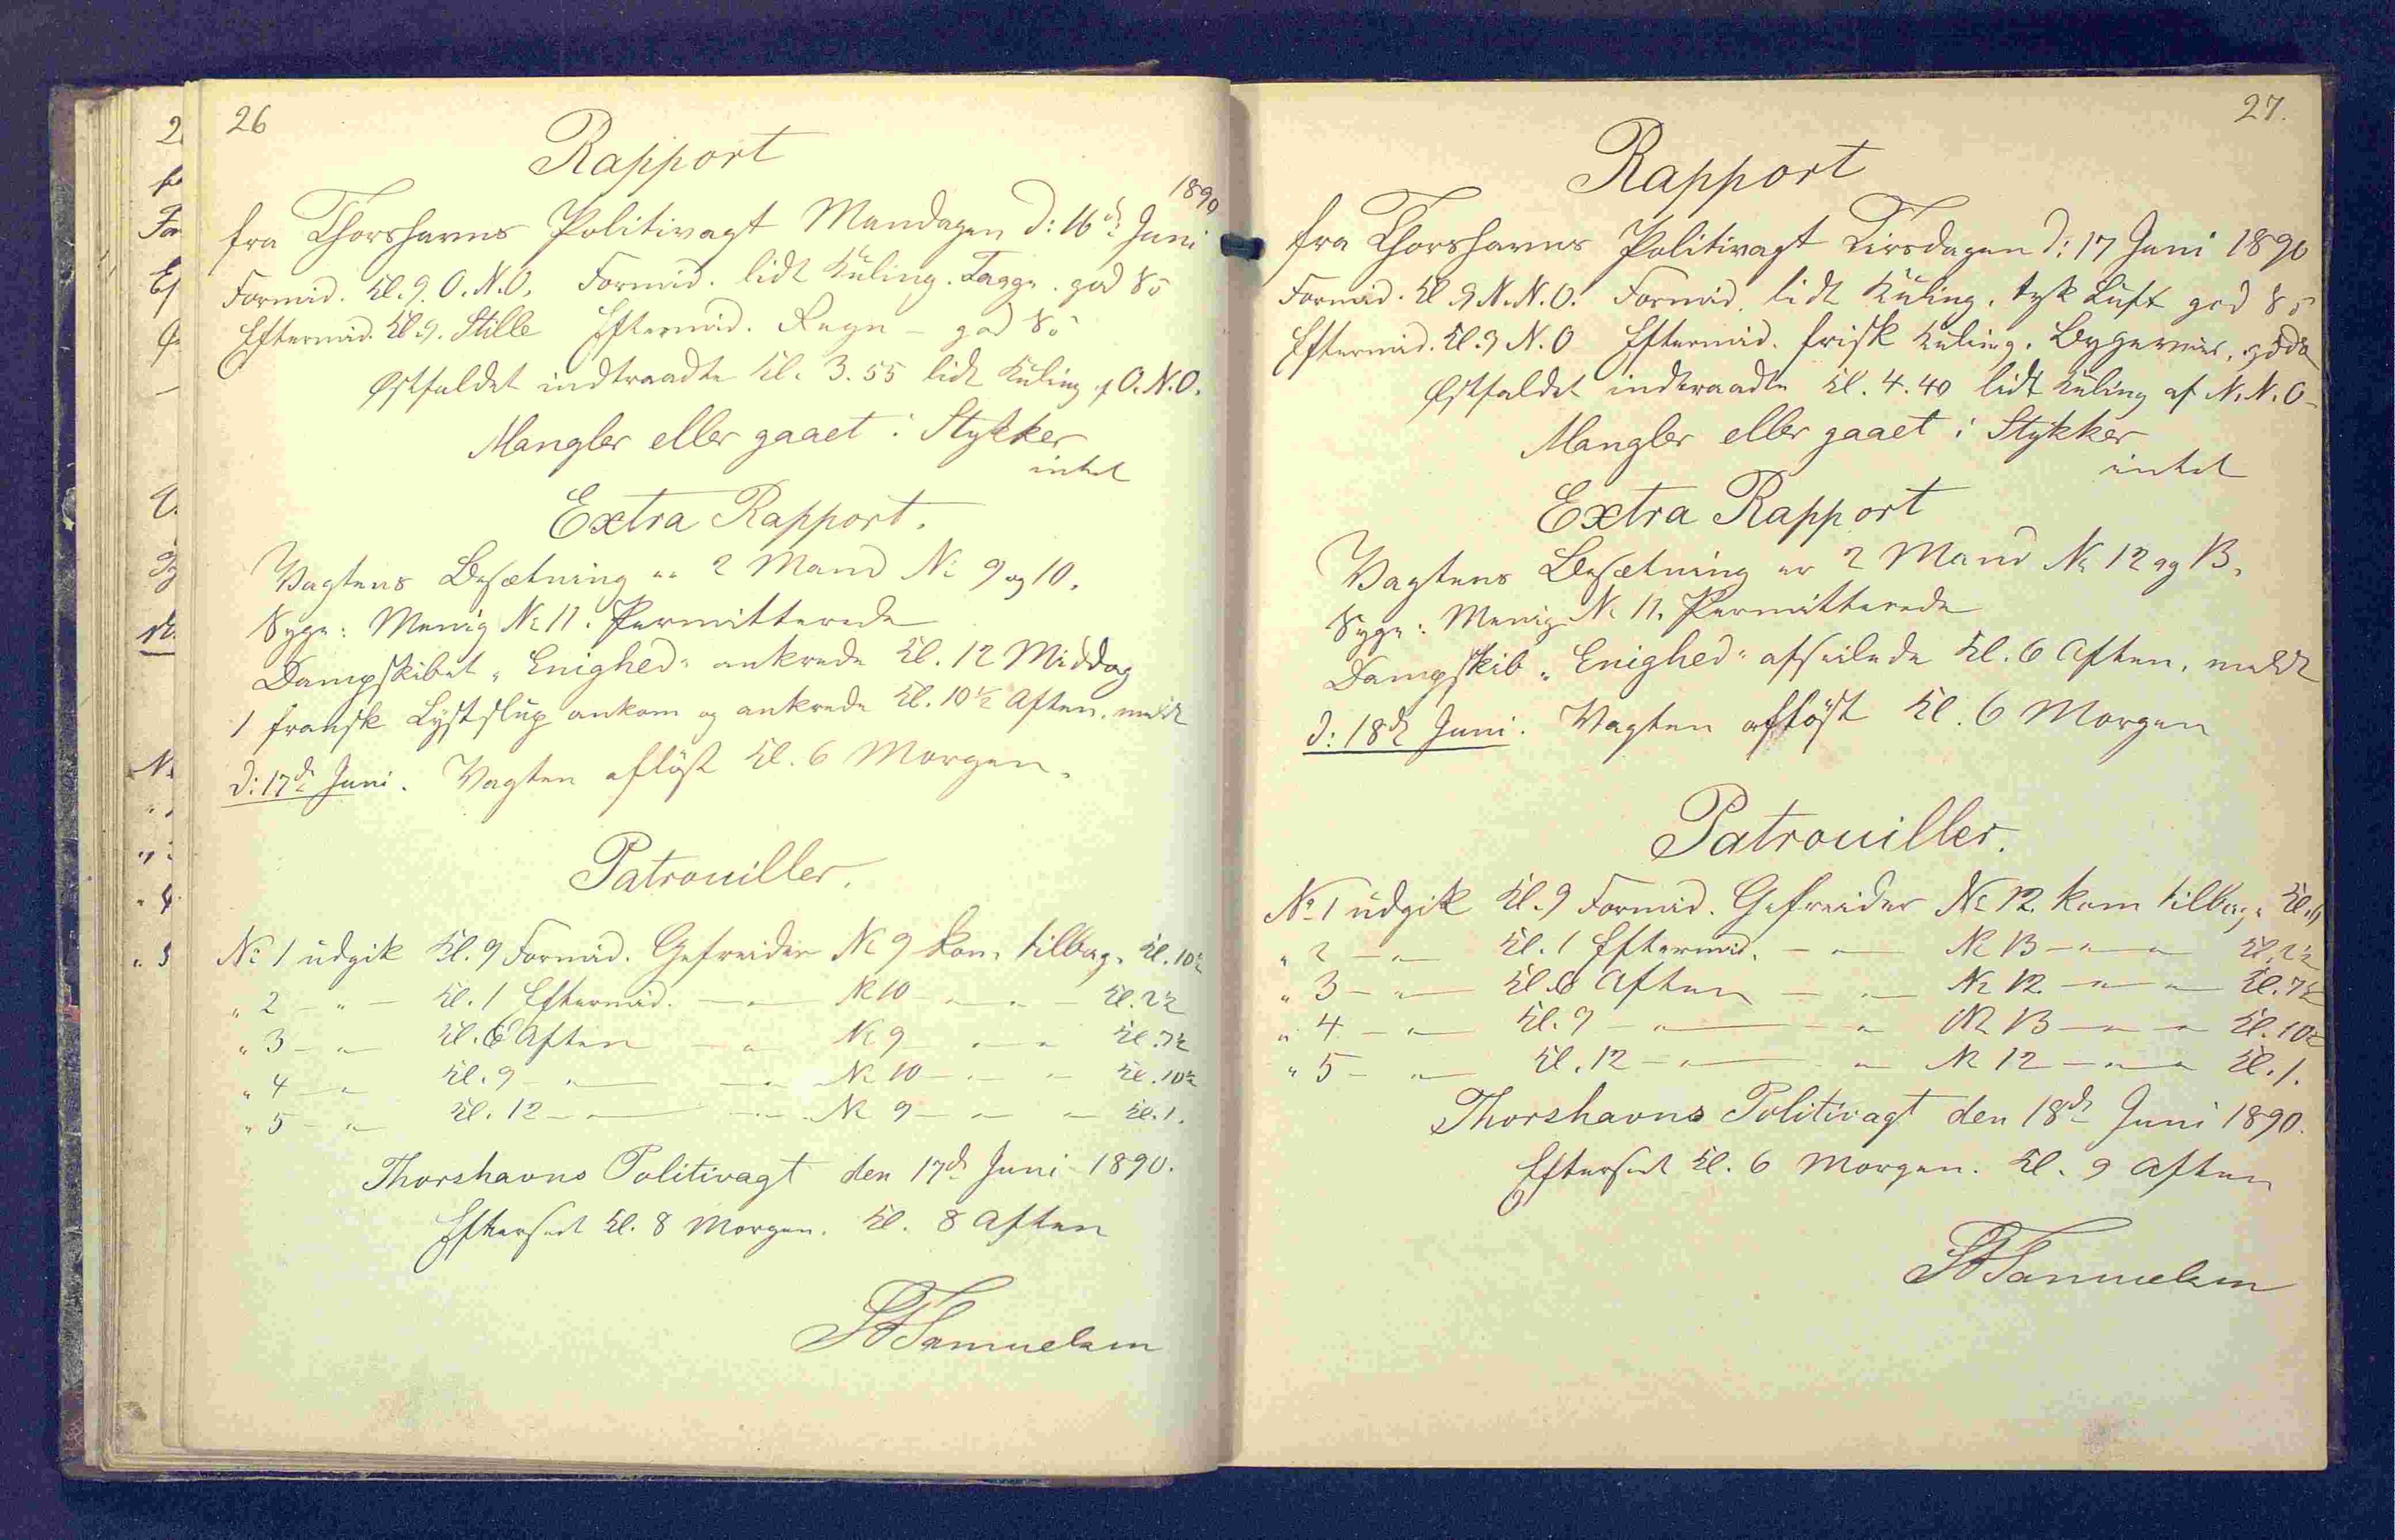 26
Rapport
1890
fra Thorshavns Politivagt Mandagen d: 16de Juni
Formid. Kl. 9. O.N.O. Formid. lidt Kuling. Taage. god Sö
Eftermid. Kl. 9. Stille Eftermid. Regn – god Sö
Østfaldet indtraadte Kl. 3.55 lidt Kuling af O.N.O.
Mangler eller gaaet i Stykker
intet
Extra Rapport.
Vagtens Besætning er 2 Mand No 9 og 10.
Syge: Menig No 11. Permitterede
Dampskibet "Enighed" ankrede Kl. 12 Middag
1 fransk Lystslup ankom og ankrede Kl. 10½ Aften. meldt
d: 17de Juni. Vagten aflöst Kl. 6 Morgen.
Patrouiller.
No 1 udgik Kl. 9 Formid. Gefreider No 9 kom tilbage Kl. 10½
" 2 – " – Kl. 1 Eftermid. – " – No 10 – " – " Kl. 2½
" 3 – " – Kl. 6 Aften – " – No 9 – " – " Kl. 7½
" 4 – " – Kl. 9 – " – – " – No 10 – " – " Kl. 10½
" 5 – " – Kl. 12 – " – – " – No 9 – " – " Kl. 1.
Thorshavns Politivagt den 17de Juni 1890.
Efterset Kl. 8 Morgen. Kl. 8 Aften
Samuelsen
27.
Rapport
fra Thorshavns Politivagt Tirsdagen d: 17 Juni 1890
Formid. Kl 9 N.N.O. Formid. lidt Kuling. tyk Luft god Sö
Eftermid. Kl. 9 N.O Eftermid. frisk Kuling.
Østfaldet indtraadte Kl. 4.40 lidt Kuling af N.N.O
Mangler eller gaaet i Stykker
intet
Extra Rapport
Vagtens Besætning er 2 Mand No 12 og 13.
Syge: Menig No 11. Permitterede
Dampskib "Enighed" afseilede Kl. 6 Aften. meldt
d: 18de Juni. Vagten aflöst Kl. 6 Morgen
Patrouiller.
No 1 udgik Kl. 9 Formid. Gefreider No 12 kom tilbage Kl.
" 2 – " – Kl. 1 Eftermid. – " – No 13 – " – " Kl. 2½
" 3 – " – Kl. 6 Aften – " – No 12 – " – " Kl. 7½
" 4 – " – Kl. 9 – " – – " – No 13 – " – " Kl. 10½
" 5 – " – Kl. 12 – " – – " – No 12 – " – " Kl. 1.
Thorshavns Politivagt den 18de Juni 1890.
Efterset Kl. 6 Morgen. Kl. 9 Aften
Samuelsen